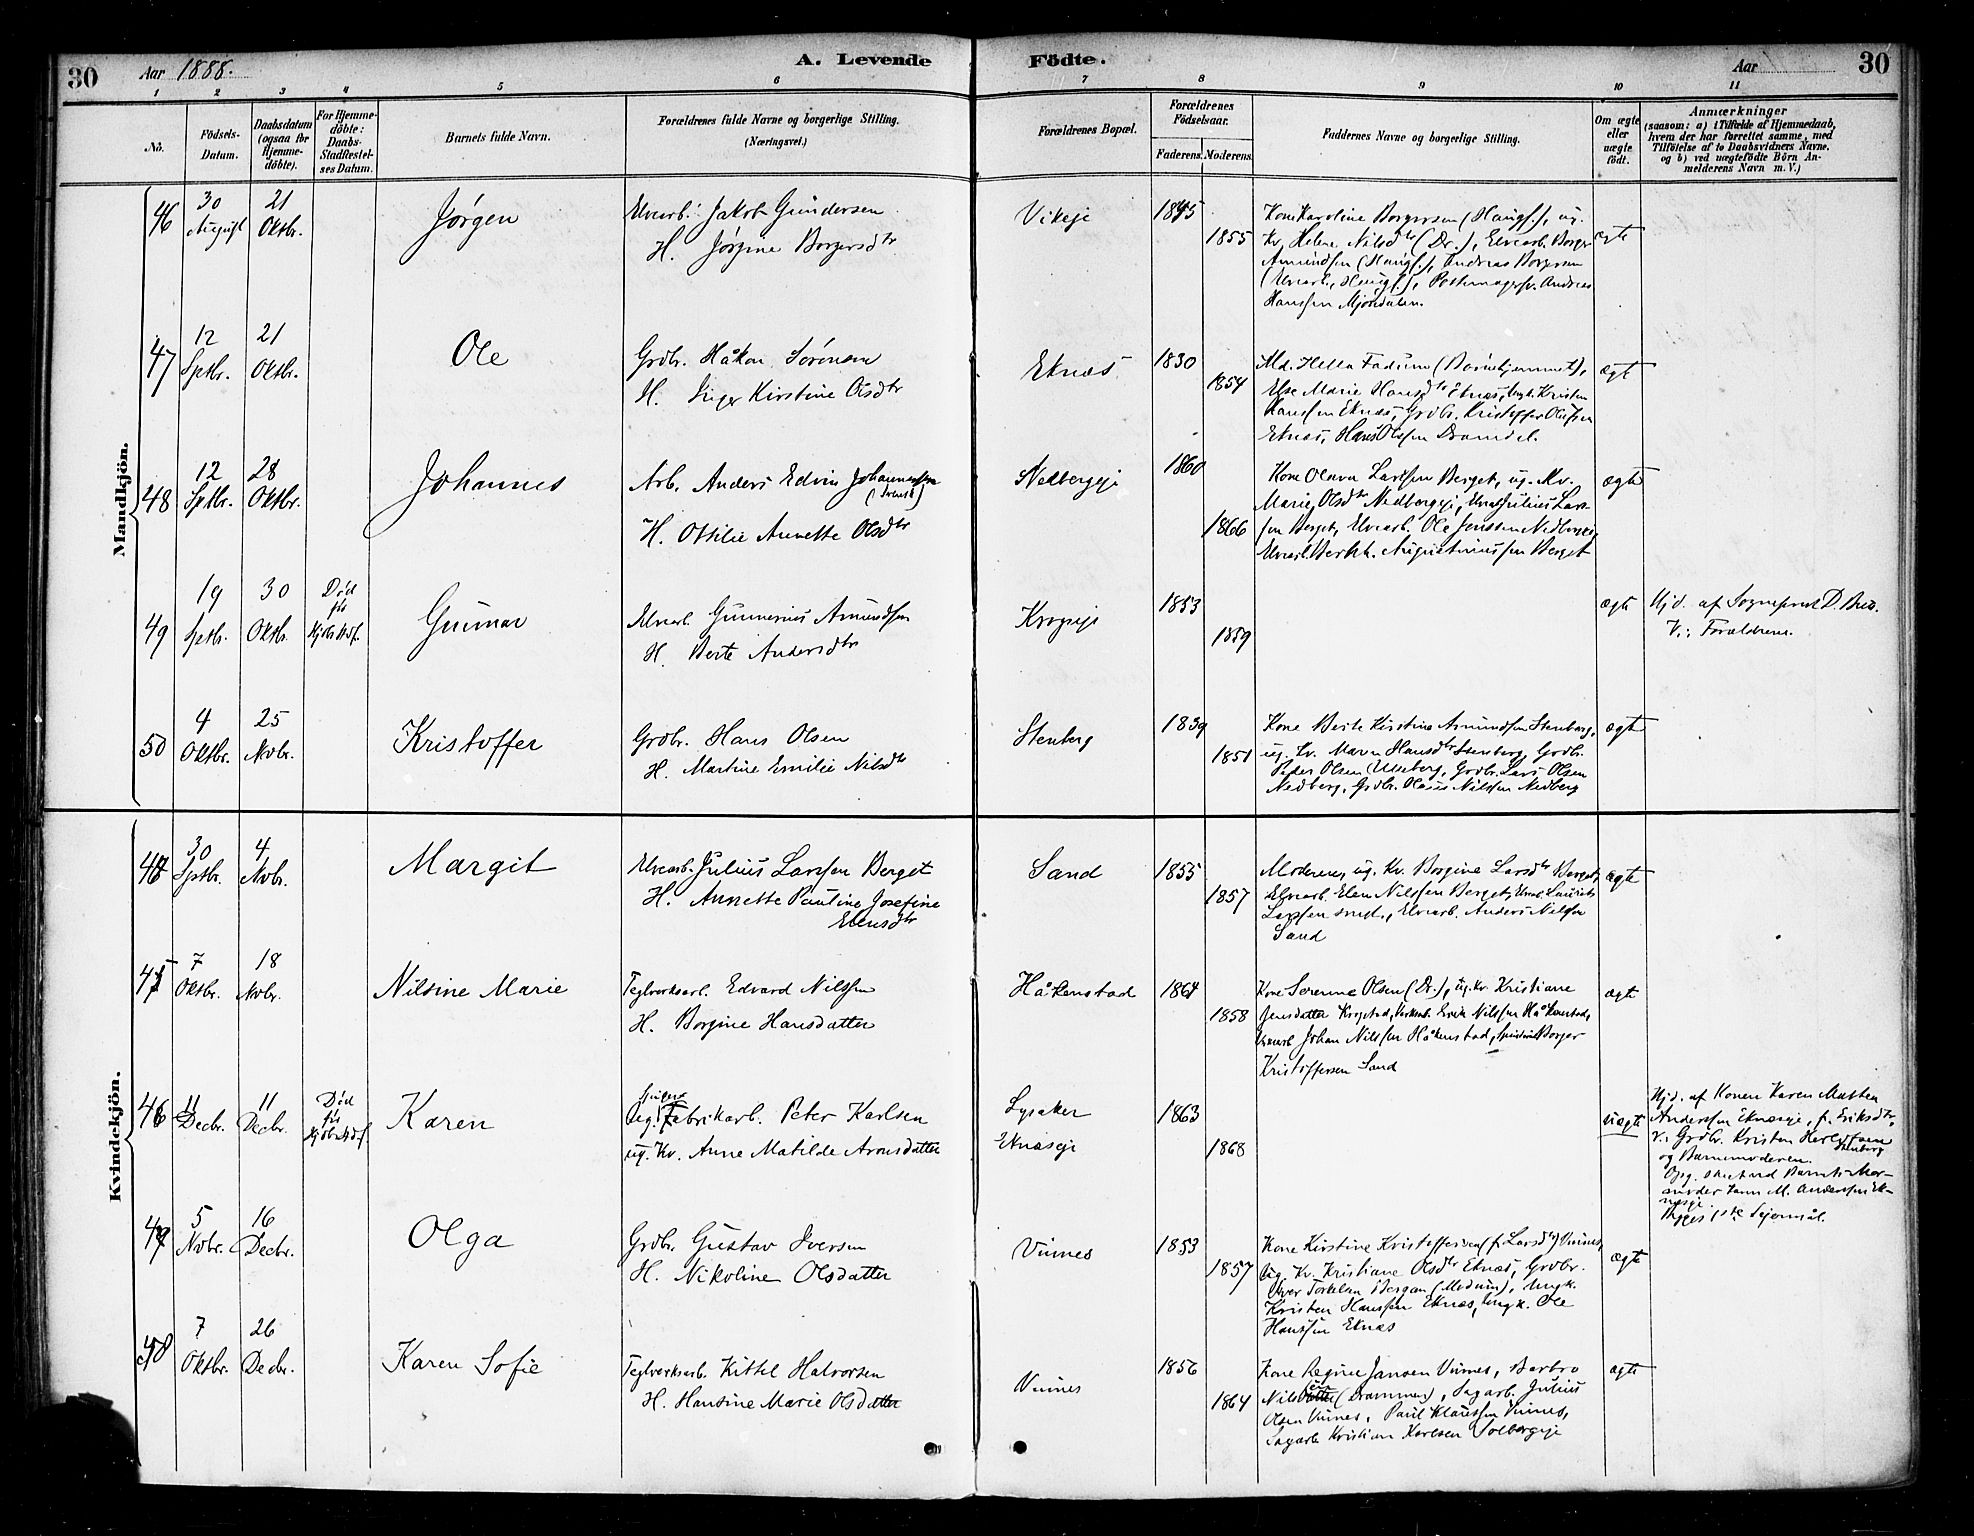 30
Aar 1888.
A. Levende
Födte.
Aar
30
1 2 3 4 5 6 7 8 9 10 11
No.
Födsels-
Datum.
Daabsdatum
(ogsaa for
Hjemme-
döbte).
For Hjemme-
döbte:
Daabs-
Stadfæstel-
ses Datum.
Barnets fulde Navn.
Forældrenes fulde Navne og borgerlige Stilling.
(Næringsvei.)
Forældrenes Bopæl.
Forældrenes
Födselsaar.
Faderens. Moderens.
Faddernes Navne og borgerlige Stilling.
Om ægte
eller
uægte
födt.
Anmærkninger
(saasom: a) i Tilfælde af Hjemmedaab,
hvem der har forrettet samme, med
Tilföielse af to Daabsvidners Navne.
og b) ved uægtefödte Börn An-
melderens Navn m. V.)
Mandkjön.
46
30
August
21
Oktbr.
Jørgen
Elvearb. Jakob Gundersen
H. Jørgine Borgersdtr
Vikeje
1845
1855
Kone Karoline Borgersen (Haugs.), ug.
Kv. Helene Nilsdtr (Dr.), Elvearb. Borger
Amundsen (Haugs.), Andreas Borgersen
(Elvearb., Haugs.), Andreas
Hanssen Mjøndalen.
ægte
47
12
Sptbr.
21
Oktbr.
Ole
Grdbr. Håkon Sørensen
H. Inger Kirstine Olsdtr
Eknæs
1830
1854
Md. Hella Fadum (Børnehjemmet),
Else Marie Hansdtr Eknæs, Ungk. Kristen
Hanssen Eknæs, Grdbr. Kristoffer Olafsen
Eknæs, Hans Olssen
ægte
48
12
Sptbr.
28
Oktbr.
Johannes
Arb. Anders Edvin Johannessen
(Svensk)
H. Otilie Annette Olsdtr
Nedbergeje
1860
1866
Kone Olava Larssen Berget, ug. Kv.
Marie Olsdtr Nedbergeje, Elvearb. Julius Lars-
sen Berget, Elvearb. Ole Jenssen Nedbergeje,
Elvearb. Augustinussen Berget
ægte
49
19
Sptbr.
30
Oktbr.
Død
før
Gunnar
Elvearb. Gunnerius Amundsen
H. Berte Andersdtr
Krogseje
1853
1859
ægte
Hjd. af Sognepræst D.
V.: Forældrene.
50
4
Oktbr.
25
Novbr.
Kristoffer
Grdbr. Hans Olsen
H. Martine Emilie Nilsdtr
Stenberg
1839
1851
Kone Berte Kirstine Amundsen Stenberg,
ug. Kv. Maren Hansdtr Stenberg, Grdbr.
Peder Olsen Ulleberg, Grdbr. Lars Olsen
Nedberg, Grdbr. Olaus Nilssen Nedberg
ægte
Kvindekjön.
30
Sptbr.
4
Novbr.
Margit
Elvearb. Julius Larssen Berget
H. Annette Pauline Josefine
Elensdtr
Sand
1855
1857
Moderen, ug. Kv. Borgine Larsdtr Berget,
Elvearb. Elen Nilssen Berget, Elvearb. Laurits
Larssen smst., Elvearb. Anders Nilssen
Sand
ægte
45
7
Oktbr.
18
Novbr.
Nilsine Marie
Teglverksarb. Edvard Nilssen
H. Borgine Hansdatter
Håkenstad
1864
1858
Kone Serenne Olsen (Dr.), ug. Kv. Kristiane
Jensdatter Krogstad, Erik Nilssen Håkenstad,
Elvearb. Johan Nilssen Håkenstad, Borger
Kristoffersen Sand
ægte
46
11
Decbr.
11
Decbr.
Død
før
Karen
Ug. Fabrikarb. Peter Karlsen
ug. Kv. Anne Matilde Arnesdatter
Lysaker
Eknæseje
1863
1868
uægte
Hjd. af Konen Karen Mathea
Anderssen Eknæseje, f. Eriksdtr,
V.: Grdbr. Kristen
Stenberg
og Barnemoderen.
Opg. skriftl. Barnets Mor-
moder Karen M. Anderssen Ek-
næseje.
Begges 1ste Lejermål.
47
5
Novbr.
16
Decbr.
Olga
Grdbr. Gustav Iversen
H. Nikoline Olsdatter
Vinnes
1853
1857
Kone Kirstine Kristoffersen (f. Larsdtr) Vinnes,
Ug. Kv. Kristiane Olsdtr Eknæs, Grdbr.
Iver Torkelsen Bergan (Modum), Ungk.
Kristen Hanssen Eknæs, Ungk. Ole
Hanssen Eknæs
ægte
48
7
Oktbr.
26
Decbr.
Karen Sofie
Teglverksarb. Kittel Halvorsen
H. Hansine Marie Olsdatter
Vinnes
1856
1864
Kone Regine Jansen Vinnes, Barbro
Nilssen (Drammen), Sagarb. Julius
Olsen Vinnes, Paul Klaussen Vinnes,
Sagarb. Kristian Karlsen Solbergeje
ægte